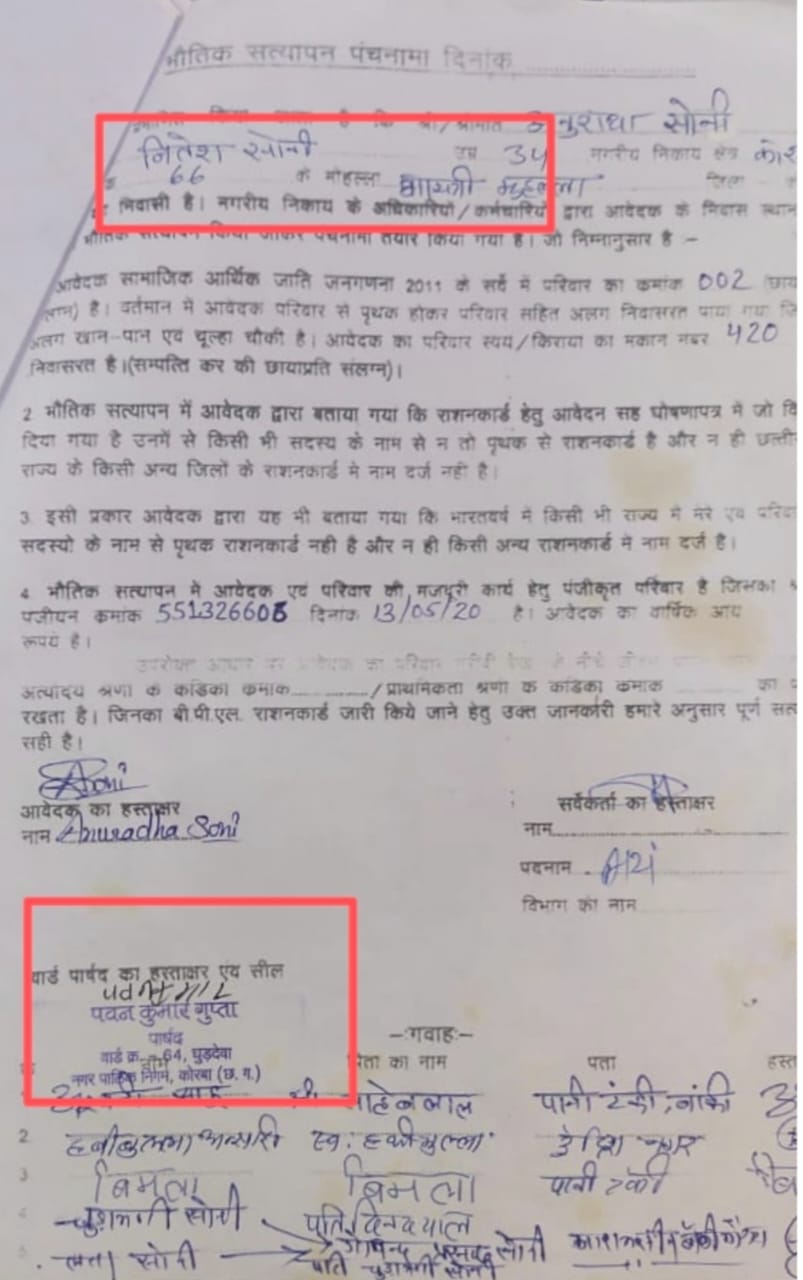 भौतिक सत्यापन पंचनामा दिनांक
है कि श्री/श्रीमति अनुराधा सोनी
नितेश सोनी उम्र 34 नगरीय निकाय क्षेत्र कोर
66 के मोहल्ला जिला
निवासी है। नगरीय निकाय के अधिकारियो/कर्मचारियो द्वारा आवेदक के निवास स्थान
भौतिक सत्यापन किया जाकर पंचनामा तैयार किया गया है। जो निम्नानुसार है :-
आवेदक सामाजिक आर्थिक जाति जनगणना 2011 के सर्वे में परिवार का कमांक 002 (छाय
है। वर्तमान में आवेदक परिवार से पृथक होकर परिवार सहित अलग निवासरत पाया गया जि
अलग खान-पान एवं चूल्हा चौकी है। आवेदक का परिवार स्वयं/किराया का मकान नंबर 420
निवासरत है।(सम्पत्ति कर की छायाप्रति संलग्न)।
2 भौतिक सत्यापन में आवेदक द्वारा बताया गया कि राशनकार्ड हेतु आवेदन सह घोषणापत्र में जो वि
दिया गया है उनमें से किसी भी सदस्य के नाम से न तो पृथक से राशनकार्ड है और न ही छत्ती
राज्य के किसी अन्य जिलों के राशनकार्ड मे नाम दर्ज नही है।
3. इसी प्रकार आवेदक द्वारा यह भी बताया गया कि भारतवर्ष में किसी भी राज्य मे मेरे एवं परिवा
सदस्यो के नाम से पृथक राशनकार्ड नही है और न ही किसी अन्य राशनकार्ड मे नाम दर्ज है।
4. भौतिक सत्यापन मे आवेदक एवं परिवार की मजदूरी कार्य हेतु पंजीकृत परिवार है जिसका
पंजीयन कमांक 551326605 दिनांक 13/05/20 है। आवेदक का वार्षिक आय
रूपये है।
उपरोक्त आधार पर आवेदक का परिवार गरीबी रेखा के नीचे जीवन
अंत्योदय श्रेणी के कंडिका कमांक............/प्राथमिकता श्रेणी के कंडिका कमांक ............ का प
रखता है। जिनका बी.पी.एल. राशनकार्ड जारी किये जाने हेतु उक्त जानकारी हमारे अनुसार पूर्ण सत्
सही है।
Soni
आवेदक का हस्ताक्षर सर्वेकर्ता का हस्ताक्षर
नाम Anuradha Soni नाम
पदनाम
विभाग का नाम
वार्ड पार्षद का हस्ताक्षर एंव सील
पवन कुमार गुप्ता
पार्षद
वार्ड क्र. - 64, घुड़देवा
नगर पालिक निगम, कोरबा (छ. ग.)
-:गवाह:-
नाम पिता का नाम पता हस्त
साहेबलाल पानी टंकी, बांकी
2 हबीबुल्ला अन्सारी स्व:
3 बिमला बिमला पानी टंकी
4 सोनी पति दिनदयाल
5. लता सोनी सोनी
पति सोनी